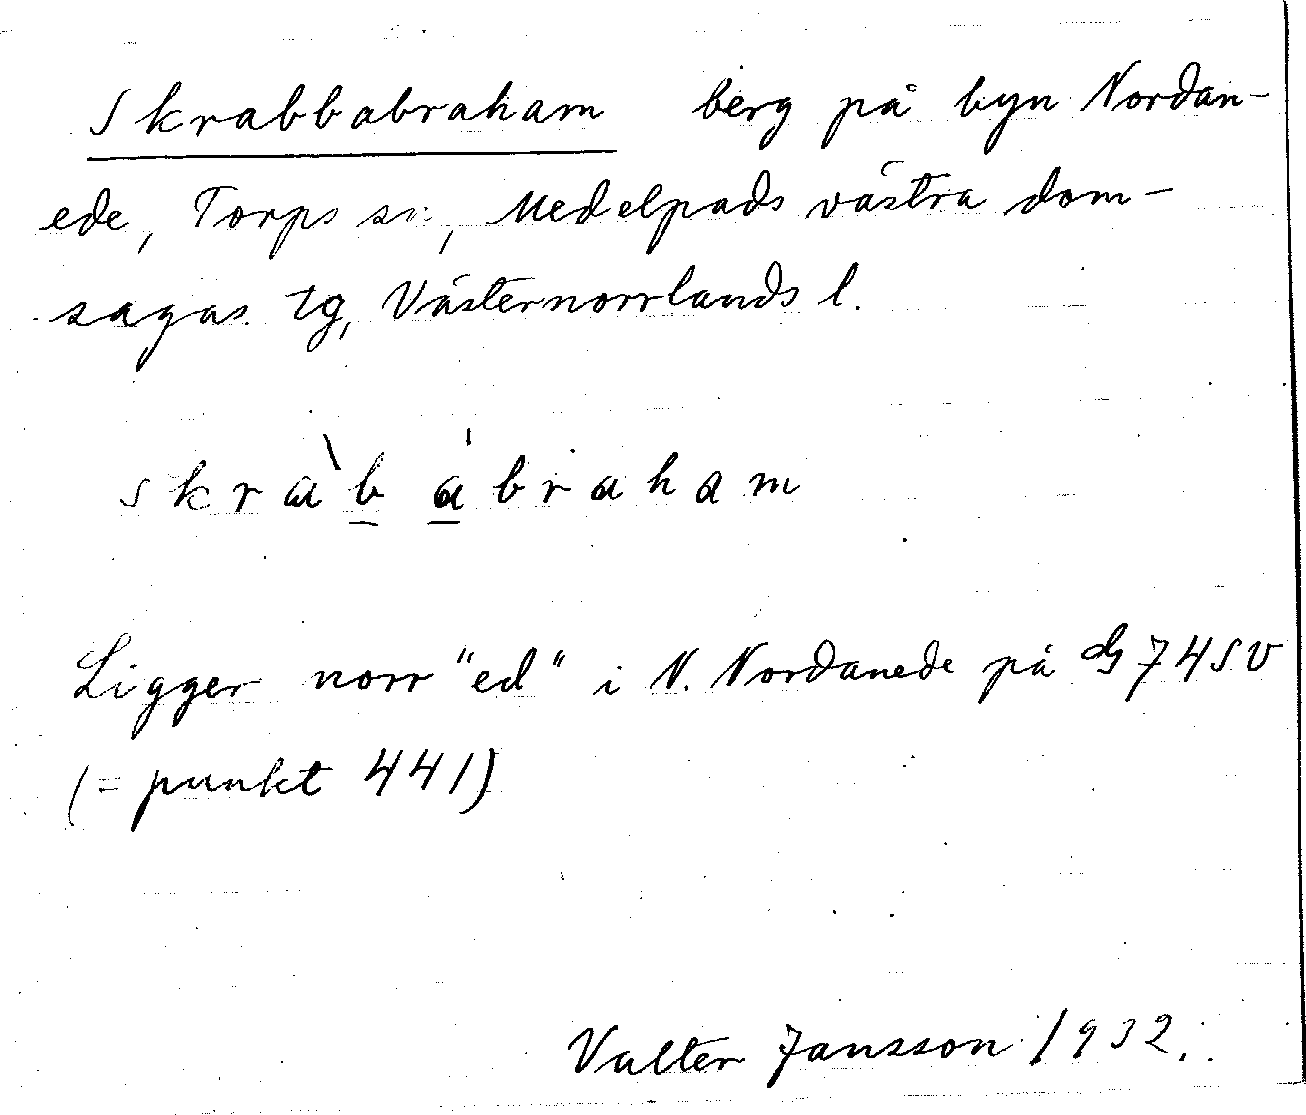 Skrabbabraham berg på byn Nordan-
ede, Torps sn, Medelpads västra dom-
sagas tg, Västernorrlands l.
skràb ábraham
Ligger norr "ed" i N. Nordanede på 74 SV
(= punkt 441)
Valter Jansson 1932.